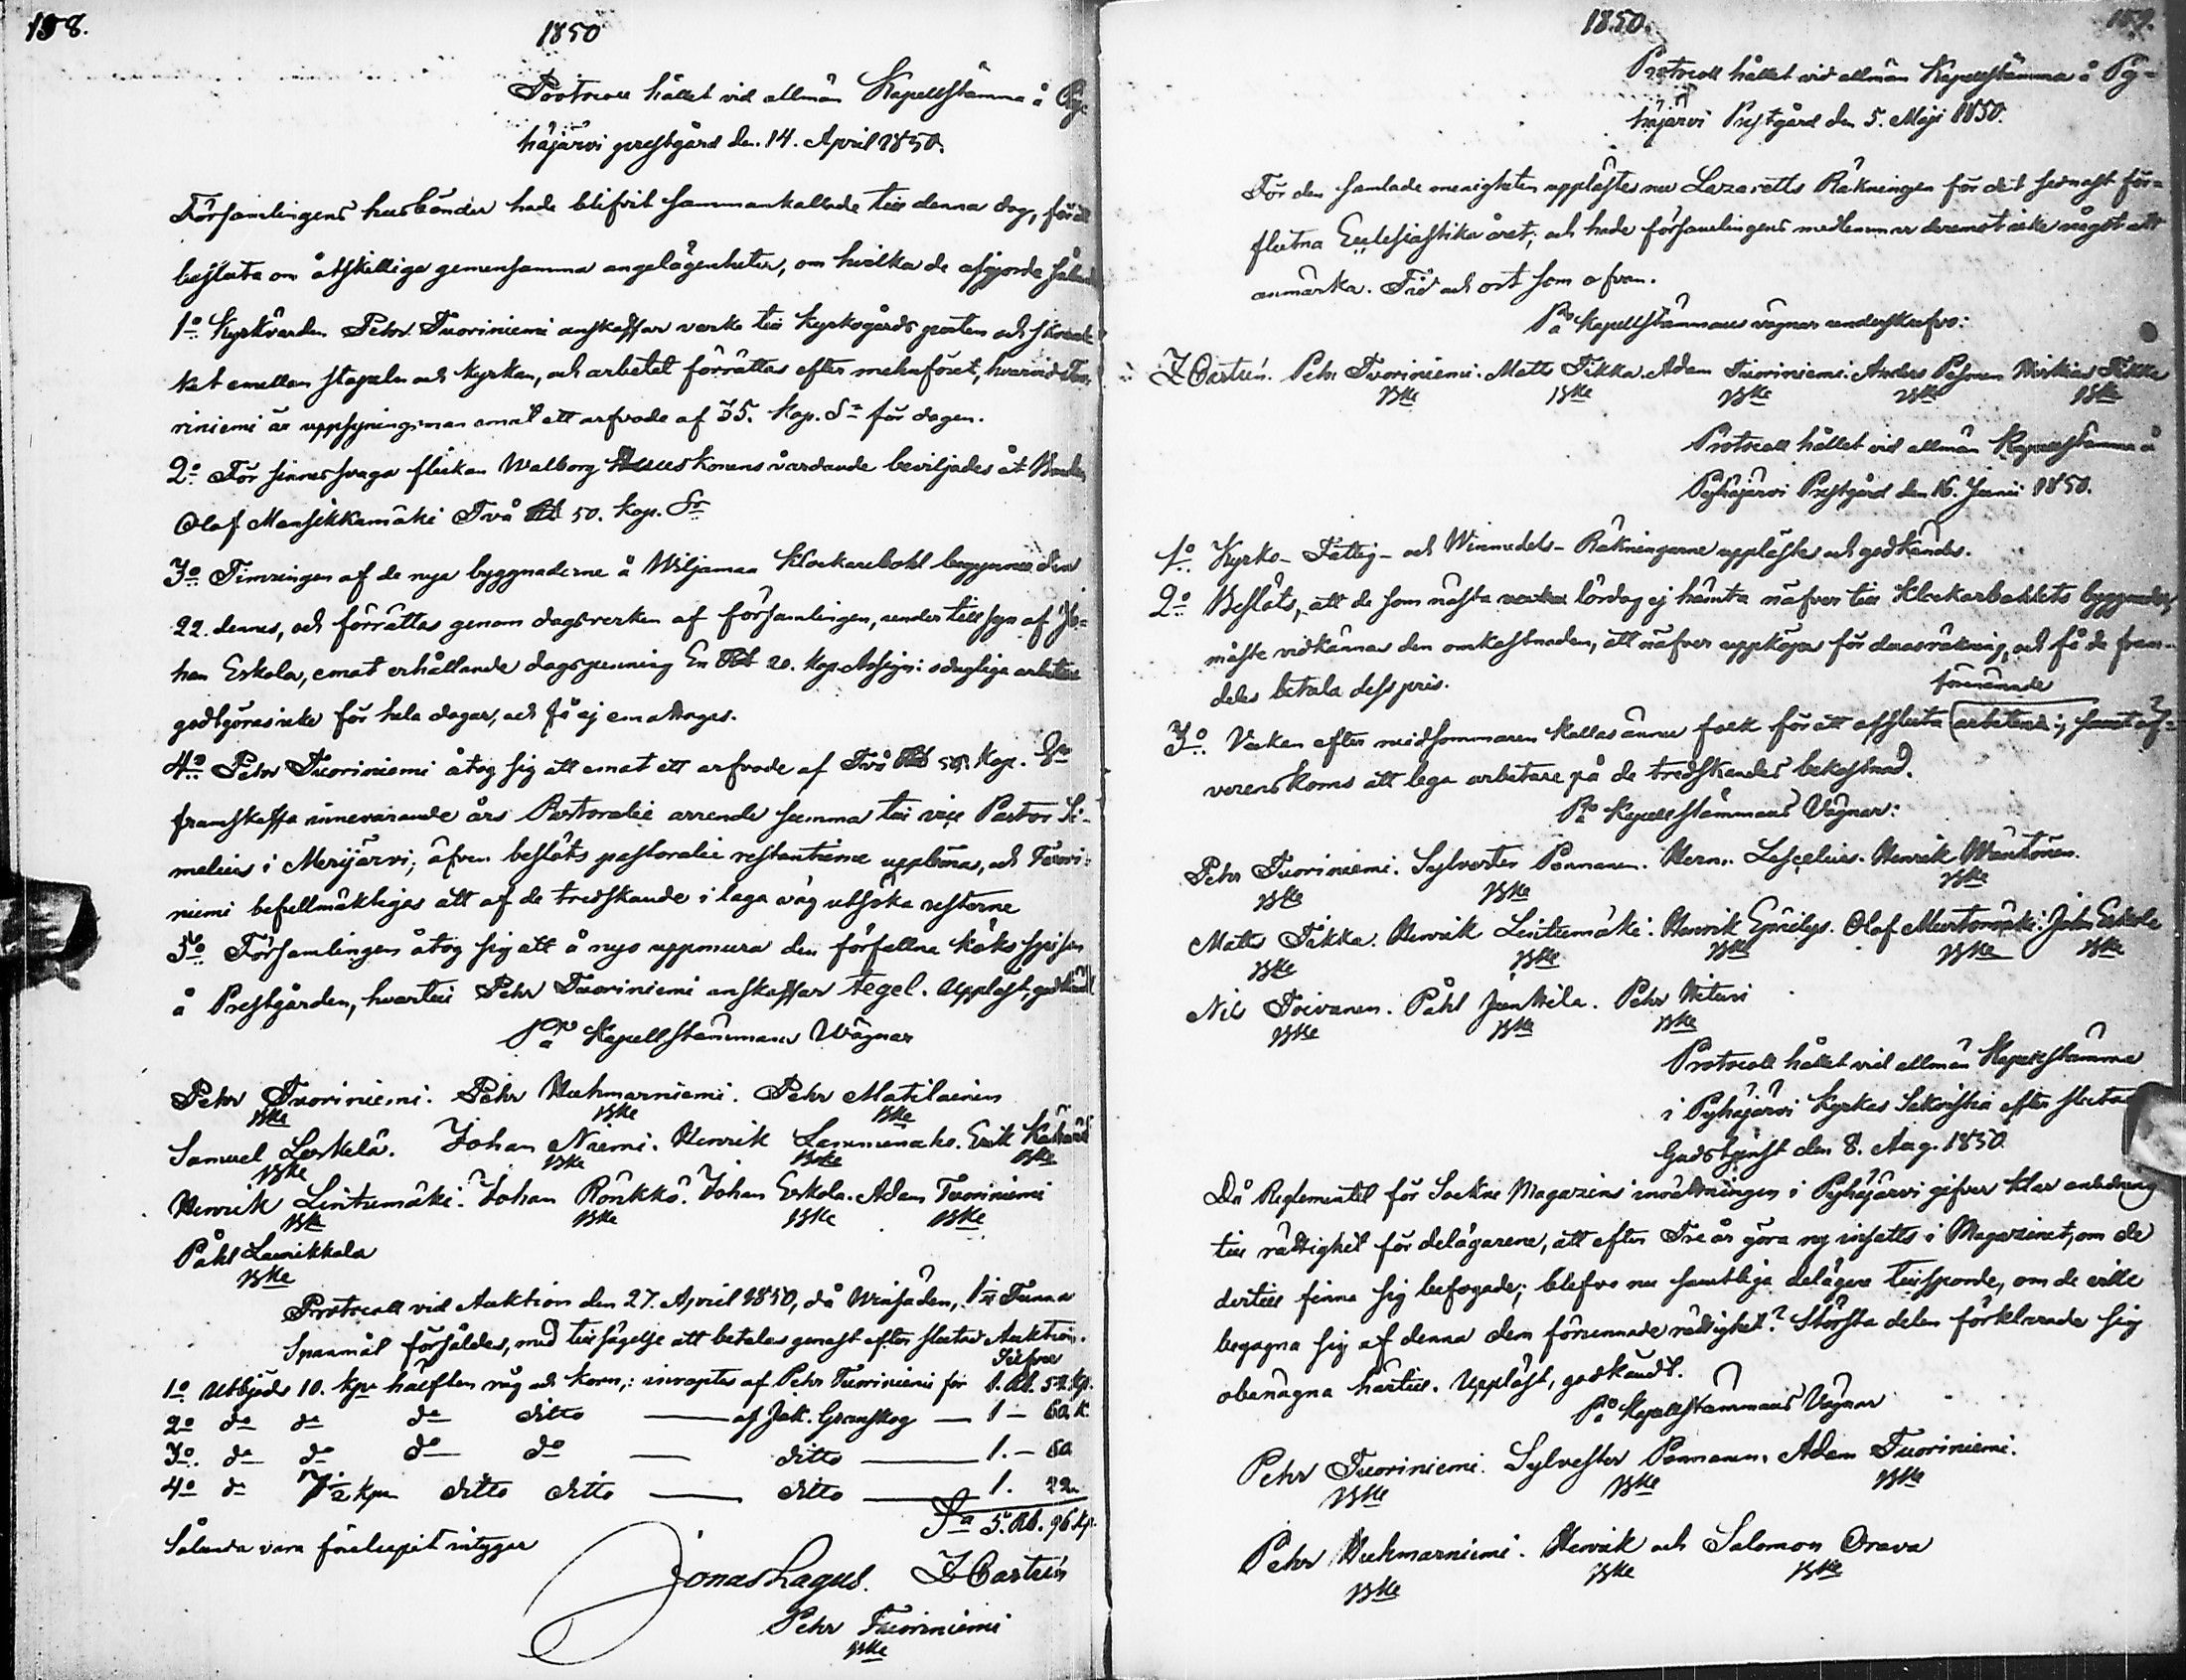 158.
1850
Protocoll hållet vid allmän Kapellstämma å Py-
häjärvi prestgård den 14. April 1850.
Församlingens husbönder hade blifvit sammankallade till denna dag, för att
besluta om åtskilliga gemensamma angelägenheter, om hvilka de afgjorde således
1o Kyrkvärden Pehr Tuoriniemi anskaffar virke till kyrkogårds porten och
ket emellan stapeln och kyrkan, och arbetet förrättas efter menföret, hvarvid Tuo-
riniemi är uppsyningsman emot ett arfvode af 35. Kop. Sr för dagen.
2o För sinnessvaga flickan Walborg Huuskonens vårdande beviljades åt Bonden
Olof Mansikkamäki Två Rub 50. kop. Sr
3o Timringen af de nya byggnaderne å Wiljamaa Klockarebohl begynnes den
22. dennes, och förrättas genom dagsverken af församlingen, under tillsyn af Jo-
han Eskola, emot erhållande dagspenning En Rub 20. kop. Assign: odugliga arbetare
godtgöras icke för hela dagar, och få ej emottagas.
4o Pehr Tuoriniemi åtog sig att emot ett arfvode af Två Rub 50. Kop. Sr
framskaffa innevarande års Pastoralie arrende summa till vice Pastor Si-
melius i Merijärvi; äfven beslöts pastoralie restantierne uppbäras, och Tuori-
niemi befullmäktigas att af de tredskande i laga väg utsöka resterne
5o Församlingen åtog sig att å nyo uppmura den förfallna köks spisen
å Prestgården, hvartill Pehr Tuoriniemi anskaffar tegel. Uppläst, godkändt
På Kapellstämmans Vägnar
Pehr Tuoriniemi. Pehr Huhmarniemi. Pehr Matilainen
Samuel Leskelä. Johan Niemi. Henrik Lamminaho. Erik
Henrik Lintumäki. Johan Rönkkö. Johan Eskola. Adam Tuoriniemi
Påhl Leinikkala
Protocoll vid Auktion den 27. April 1850, då Tunna
Spanmål försåldes, med tillsägelse att betalas genast efter slutad Auktion.
Silfver
1o Utbjöds 10. kpr hälften råg och korn, inropades af Pehr Tuoriniemi för 1. Rb. 52 Kp.
2o do do do ditto — af Jak. Granskog — 1 — 60 K.
3o do do do do — ditto — 1. — 60
4o do 7 1/2 kpr ditto ditto — ditto — 1. 22.
Sa 5. Rb. 96 Kp.
Sålunda vara förelupit intygar
Jonas Lagus. Z Castrén
Pehr Tuoriniemi
1850.
159.
Protocoll hållet vid allmän Kapellstämma å Py-
häjärvi Prestgård den 5. Maji 1850.
För den samlade menigheten upplästes nu Lazaretts Räkningen för det sednast för-
flutna Ecclesiastika året; och hade församlingens medlemmar deremot icke något att
anmärka. Tid och ort som ofvan.
På Kapellstämmans vägnar underskrefvo:
Z Castrén. Pehr Tuoriniemi. Matts Tikka. Adam Tuoriniemi. Anders Pesonen Tikka
Protocoll hållet vid allmän Kapellstämma å
Pyhäjärvi Prestgård den 16. Junii 1850.
1o Kyrko- Fattig- och Winmedels- Räkningarne upplästes och godkändes.
2o Beslöts, att de som nästa lördag ej hämta näfver till Klockarbohlets byggnader,
måste vidkännas den omkostnaden, att näfver uppköpas för deras räkning, och få de fram-
deles betala dess pris.
förenämnde
3o Veckan efter midsommaren kallas ännu folk för att afsluta arbetena; samt öf-
verenskoms att lega arbetare på de tredskandes bekostnad.
På Kapellstämmans Vägnar:
Pehr Tuoriniemi. Sylvester Ponnanen. Herm. Lescelius. Henrik Mäntönen.
Matts Tikka. Henrik Lintumäki. Henrik Olof Johan Eskola
Nils Toivanen. Påhl Junttila. Pehr
Protocoll hållet vid allmän Kapellstämma
i Pyhäjärvi Kyrkas Sakristia efter slutad
Gudstjenst den 8. Aug. 1850
Då Reglementet för Sockne Magazins inrättningen i Pyhäjärvi gifver klar anledning
till rättighet för delägarena, att efter Tre år göra ny insatts i Magazinet, om de
dertill finna sig befogade; blefvo nu samtliga delägare tillsporde, om de ville
begagna sig af denna dem förunnade rättighet? Största delen förklarade sig
obenägna härtill. Uppläst, godkändt.
På Kapellstämmans Vägnar
Pehr Tuoriniemi. Sylvester Ponnanen. Adam Tuoriniemi.
Pehr Huhmarniemi. Henrik och Salomon Orava